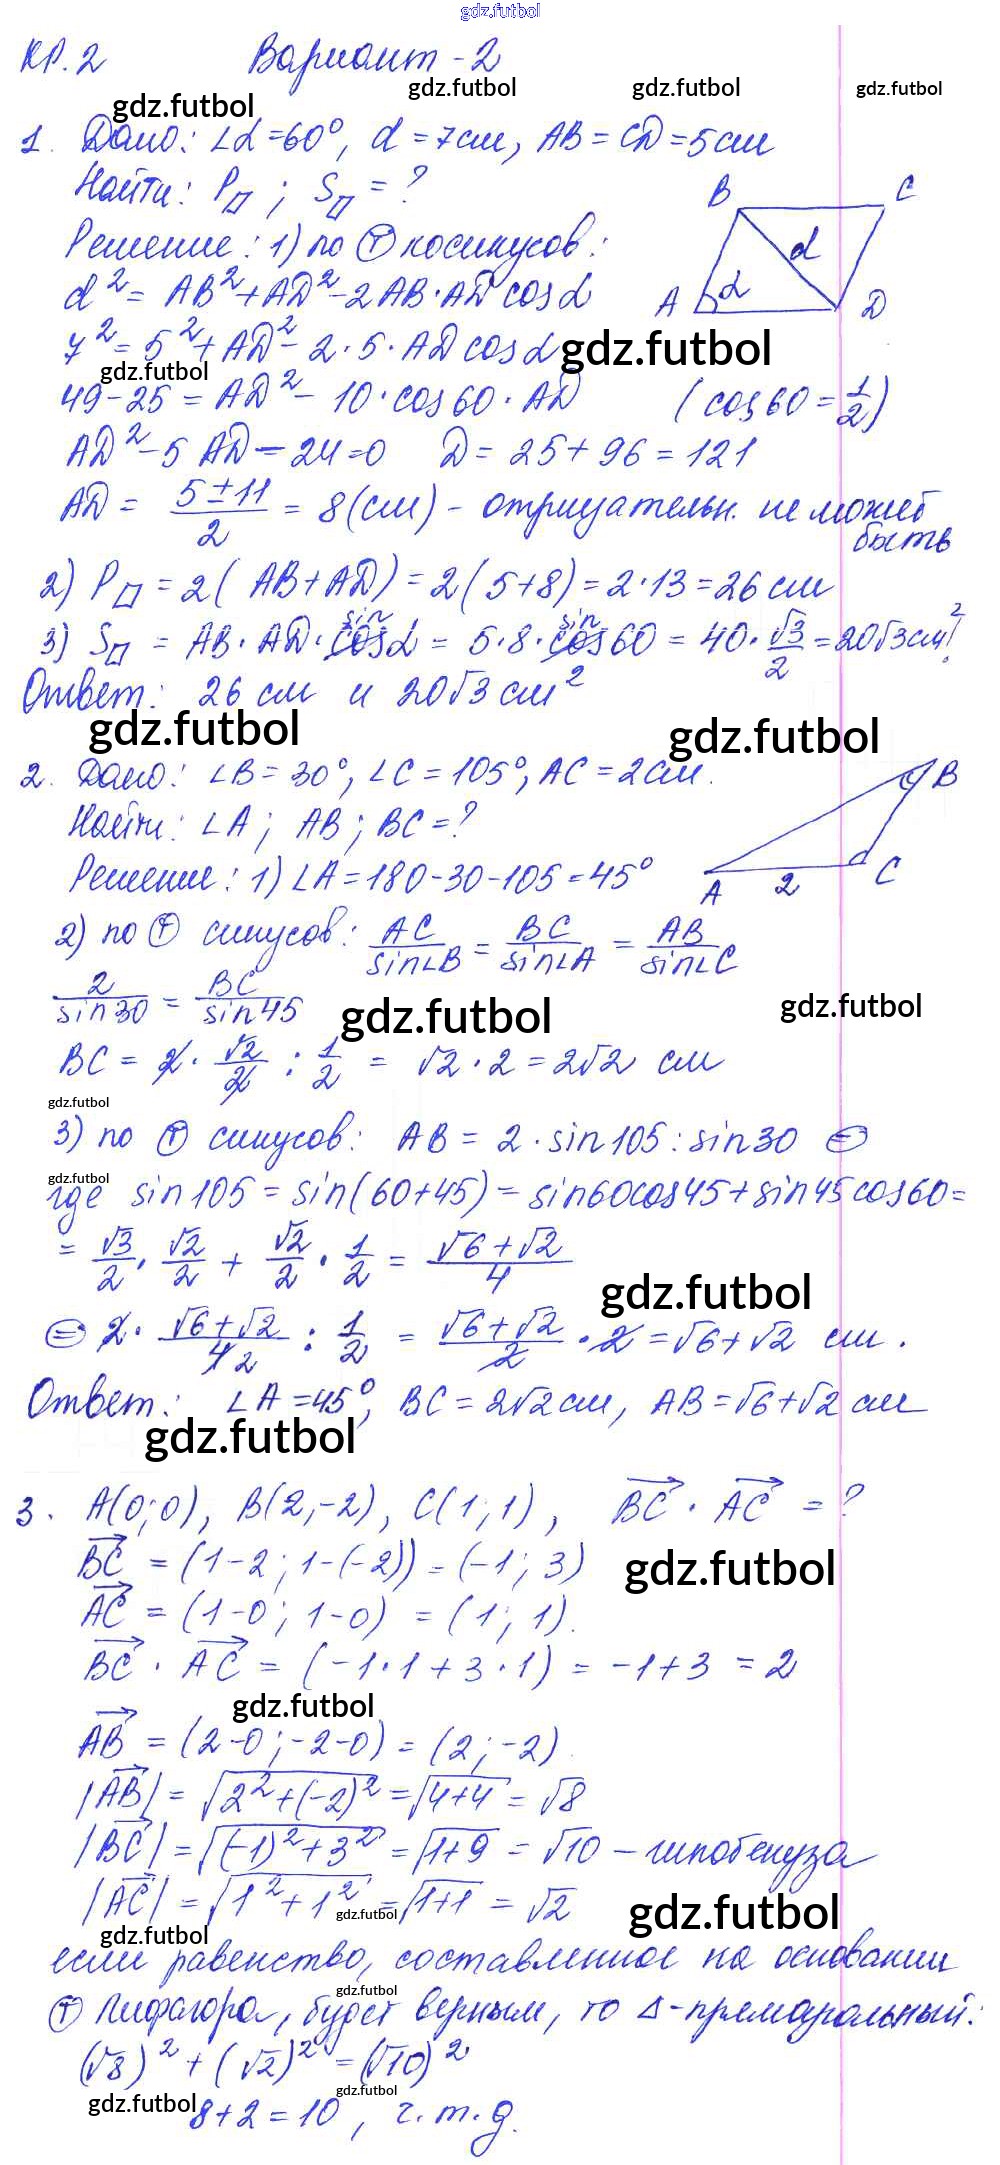 gdz.futbol
КР.2 Вариант-2
gdz.futbol gdz.futbol gdz.futbol gdz.futbol
1. Дано: ∠α=60°, d=7см, AB=CD=5см
Найти: P▱; S▱=?
B C
Решение: 1) по Ⓣ косинусов:
d
d²=AB²+AD²-2AB·AD cosα
A α D
7²=5²+AD²-2·5·AD cosα
gdz.futbol
gdz.futbol
49-25=AD²-10·cos60·AD (cos60=1/2)
AD²-5AD-24=0 D=25+96=121
AD=(5±11)/2=8(см)-отрицательн. не может
быть
2) P▱=2(AB+AD)=2(5+8)=2·13=26см
sin sin
3) S▱=AB·AD·cosα=5·8·cos60=40·√3/2=20√3см²!
Ответ: 26см и 20√3см²
gdz.futbol gdz.futbol
2. Дано: ∠B=30°, ∠C=105°, AC=2см.
B
Найти: ∠A; AB; BC=?
Решение: 1) ∠A=180-30-105=45°
A 2 C
2) по Ⓣ синусов: AC/sin∠B=BC/sin∠A=AB/sin∠C
2/sin30=BC/sin45
gdz.futbol gdz.futbol
BC=2·√2/2:1/2=√2·2=2√2 см
gdz.futbol
3) по Ⓣ синусов: AB=2·sin105:sin30 ⊜
gdz.futbol
где sin105=sin(60+45)=sin60cos45+sin45cos60=
=√3/2·√2/2+√2/2·1/2=(√6+√2)/4
gdz.futbol
⊜ 2·(√6+√2)/4 2:1/2=(√6+√2)/2·2=√6+√2 см.
Ответ: ∠A=45°, BC=2√2см, AB=√6+√2см
gdz.futbol
3. A(0;0), B(2;-2), C(1;1), BC⃗·AC⃗=?
BC⃗=(1-2; 1-(-2))=(-1; 3)
gdz.futbol
AC⃗=(1-0; 1-0)=(1; 1).
BC⃗·AC⃗=(-1·1+3·1)=-1+3=2
gdz.futbol
AB⃗=(2-0; -2-0)=(2; -2).
|AB⃗|=√(2²+(-2)²)=√(4+4)=√8
|BC⃗|=√((-1)²+3²)=√(1+9)=√10-гипотенуза
|AC⃗|=√(1²+1²)=√(1+1)=√2
gdz.futbol gdz.futbol
gdz.futbol
если равенство, составленное на основании
gdz.futbol
Ⓣ Пифагора, будет верным, то Δ-прямоугольный:
(√8)²+(√2)²=(√10)²
gdz.futbol
gdz.futbol
8+2=10, ч.т.д.